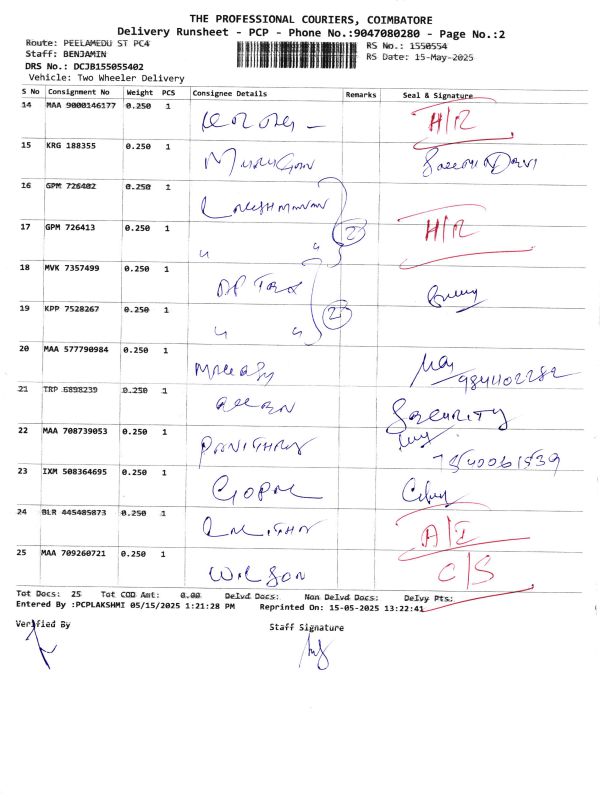 THE PROFESSIONAL COURIERS, COIMBATORE
Delivery Runsheet - PCP - Phone No.:9047080280 - Page No.:2
Route: PEELAMEDU ST PC4
Staff: BENJAMIN
DRS No.: DCJB155055402
Vehicle: Two Wheeler Delivery
RS No.: 1550554
RS Date: 15-May-2025
S No Consignment No Weight PCS Consignee Details Remarks Seal & Signature
14 MAA 9000146177 0.250 1 H/R
15 KRG 188355 0.250 1 Murugan
16 GPM 726402 0.250 1 Lakshmanan
17 GPM 726413 0.250 1 " " 2 H/R
18 MVK 7357499 0.250 1
19 KPP 7528267 0.250 1 " " 2
20 MAA 577790984 0.250 1 9841102282
21 TRP 6898239 0.250 1 Security
22 MAA 708739053 0.250 1
23 IXM 508364695 0.250 1 Gopal
24 BLR 445485873 0.250 1 A/I
25 MAA 709260721 0.250 1 Wilson C/S
Tot Docs: 25 Tot COD Amt: 0.00 Delvd Docs: Non Delvd Docs: Delvy Pts:
Entered By :PCPLAKSHMI 05/15/2025 1:21:28 PM Reprinted On: 15-05-2025 13:22:41
Verified By
Staff Signature